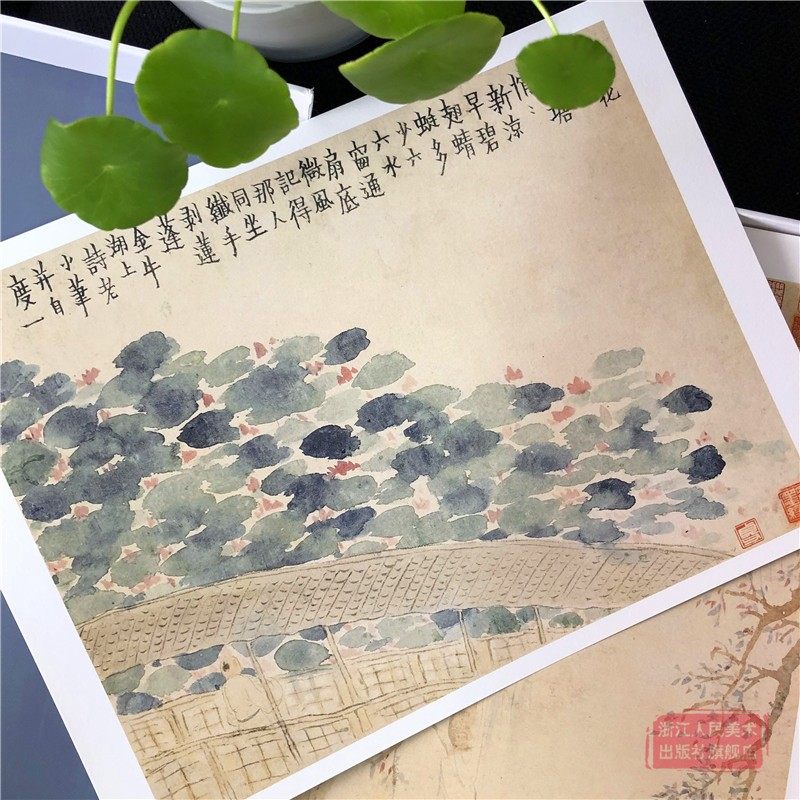 花
塘
悄
新涼
早碧
翅蜻
蜓多
少六
六水
窗通
扇底
微風
記得
那人
同坐
纖手
剝蓮
蓬
金牛
湖上
詩老
小筆
并自
度一
浙江人民美术
出版社旗舰店